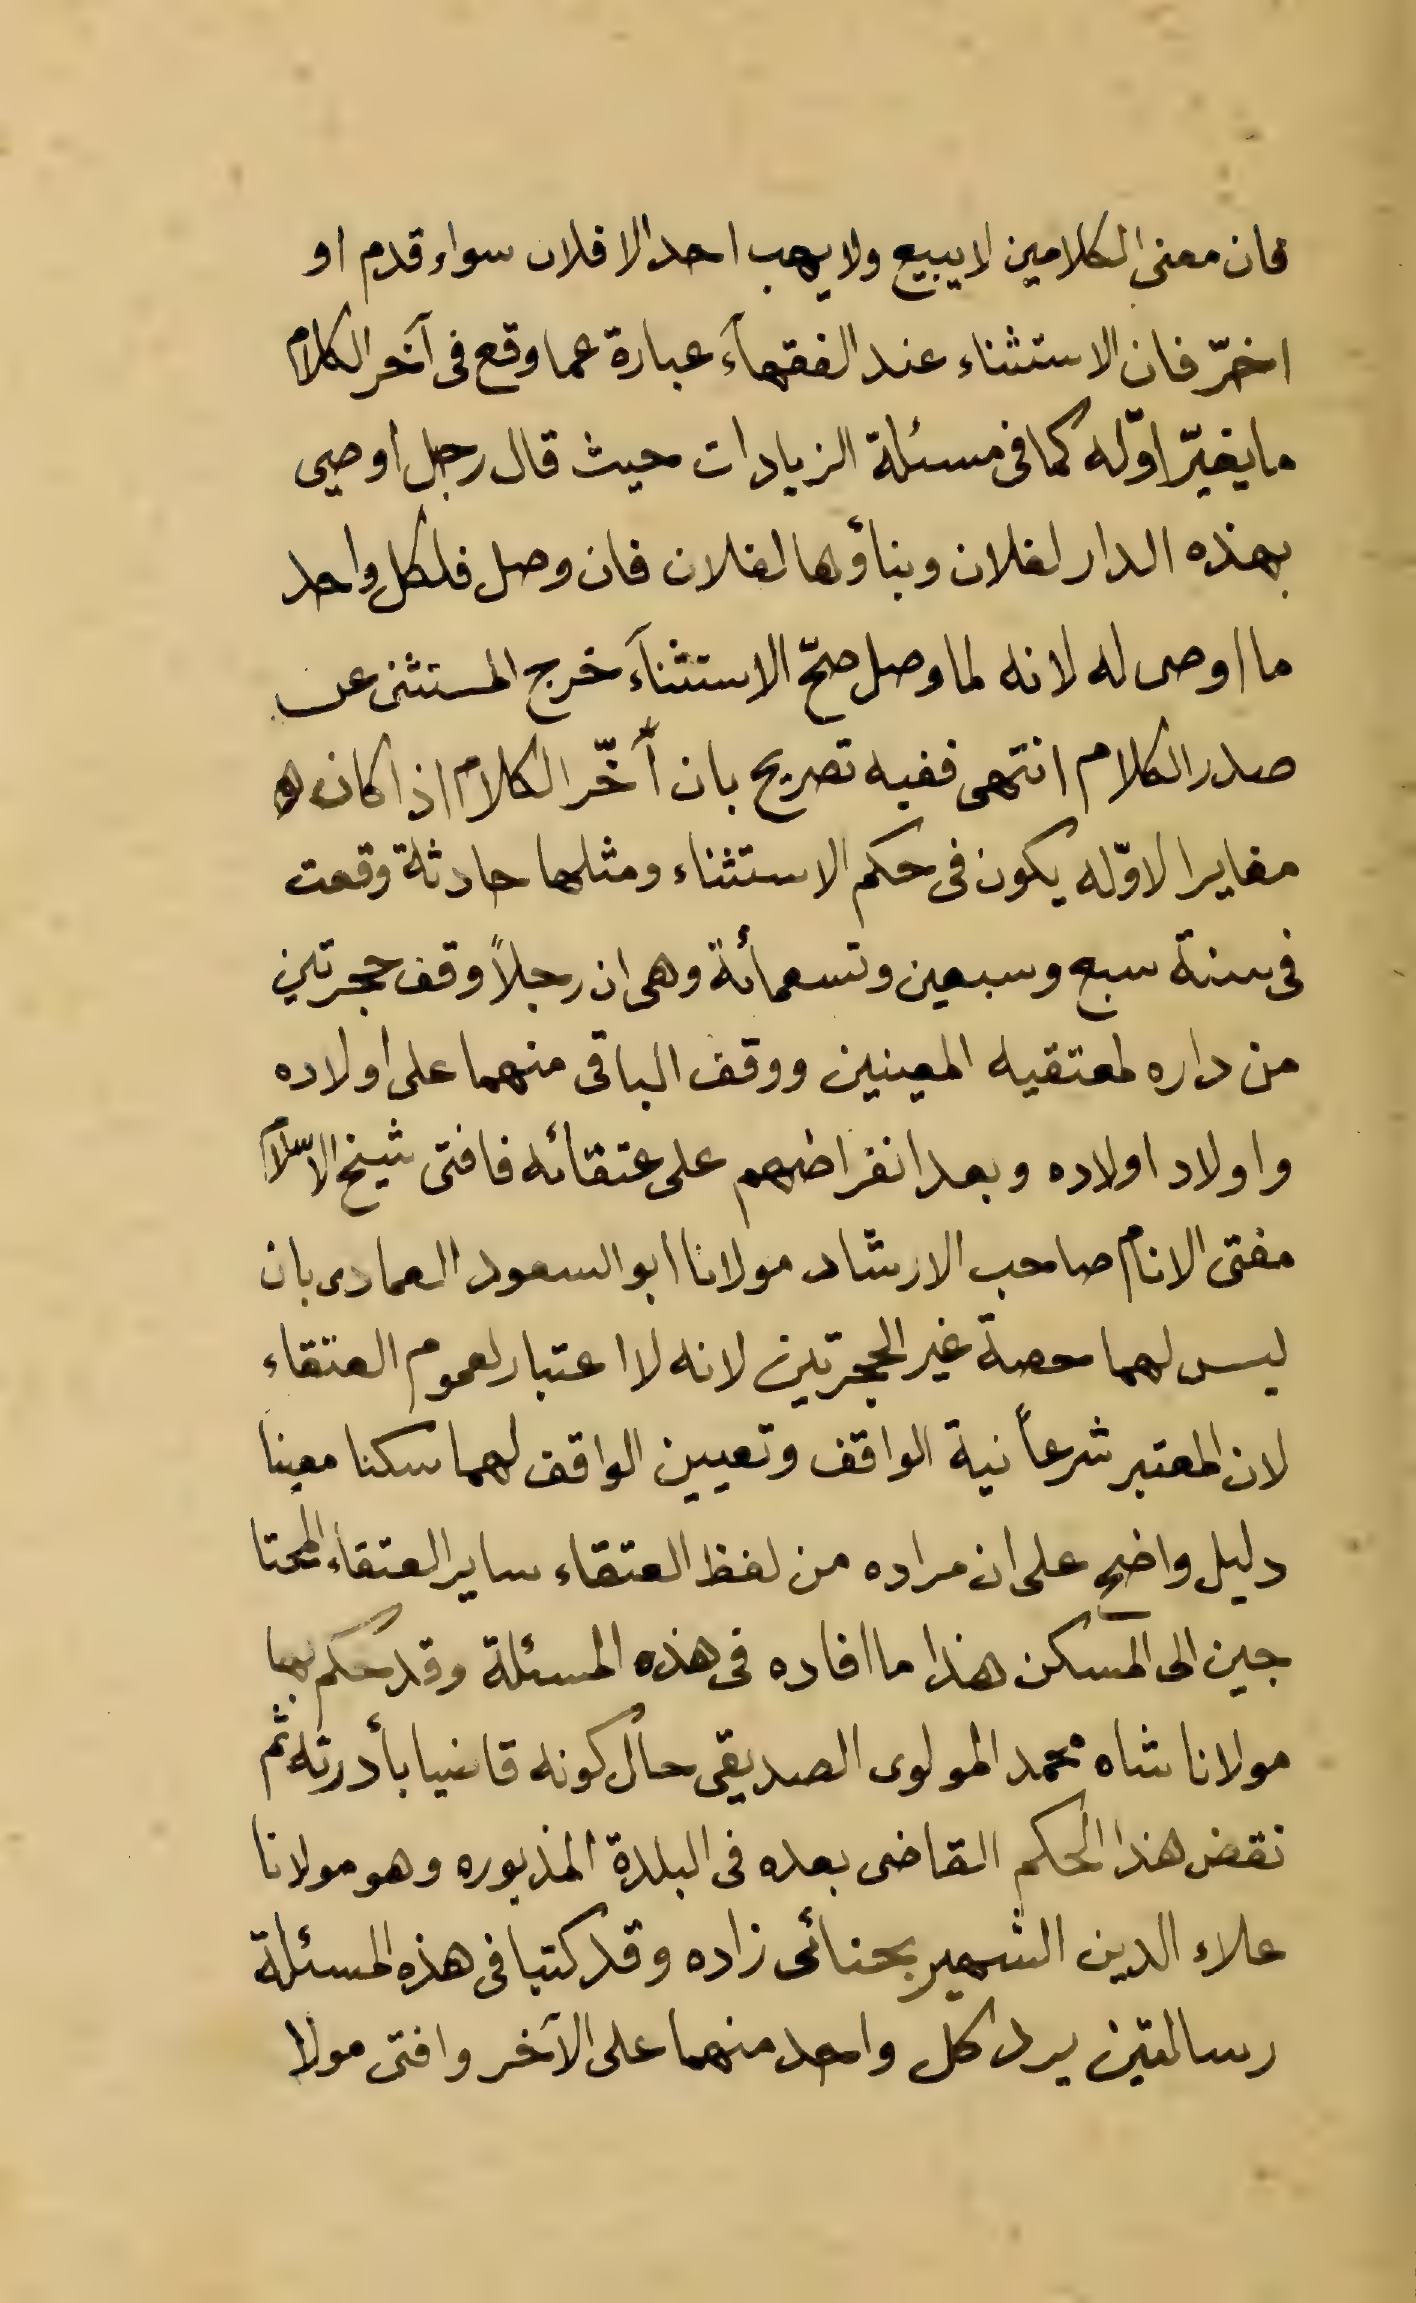 فان معنى الكلامين لا يبيع ولا يهب احد الا فلان سواء قدم او
اخرّ فان الاستثناء عند الفقهآء عبارة عما وقع فى آخر الكلام
ما يغيرّ اوّله كما فى مسئلة الزيادات حيث قال رجل اوصى
بهذه الدار لفلان وبناؤها لفلان فان وصل فلكل واحد
ما اوصى له لانه لما وصل صحّ الاستثنآء خرج المستثنى عن
صدر الكلام انتهى ففيه تصريح بان آخّر الكلام اذا كان
مغايرا لاوّله يكون فى حكم الاستثناء ومثلها حادثة وقعت
فى سنة سبع وسبعين وتسعمأئة وهى ان رجلاً وقف حجرتين
من داره لمعتقيه المعينين ووقف الباقى منهما على اولاده
واولاد اولاده وبعد انقراضهم على عتقائه فافتى شيخ الاسلام
مفتى الانام صاحب الارشاد مولانا ابو السعود العمادى بان
ليس لهما حصة غير الحجرتين لانه لا اعتبار لعموم العتقاء
لان المعتبر شرعاً نية الواقف وتعيين الواقف لهما سكنا معينا
دليل واضح على ان مراده من لفظ العتقاء ساير العتقاء المحتا
جين الى المسكن هذا ما افاده فى هذه المسئلة وقد حكم بها
مولانا شاه محمد المولوى الصديقى حال كونه قاضيا بأدرنه ثم
نقض هذا الحكم القاضى بعده فى البلدة المذبوره وهو مولانا
علاء الدين الشهير بحنائى زاده وقد كتبا فى هذه المسئلة
رسالتين يرد كل واحد منهما على الآخر وافتى مولا